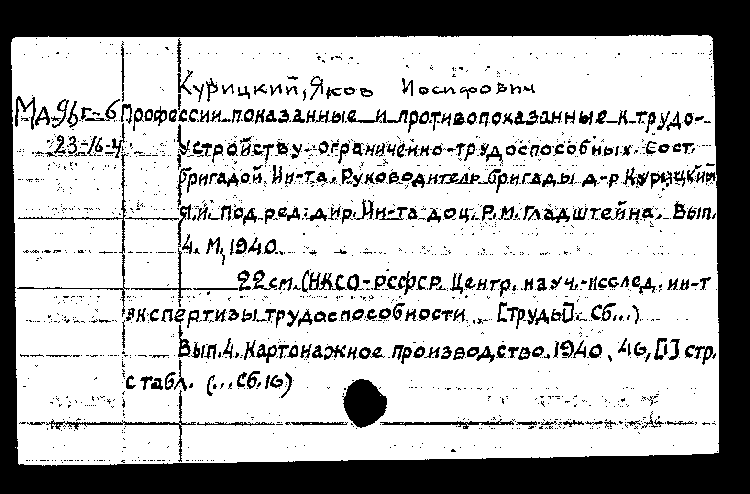 Курицкий, Яков Иосифович
МД 96г-6 Профессии показанные и противопоказанные к трудо-
23-16-4 устройству ограниченно-трудоспособных. Сост.
бригадой Ин-та. Руководитель бригады д-р Курицкий
Я.И. под ред: дир. Ин-та доц. Р.М. Гладштейна. Вып.
4. М., 1940.
22 см. (НКСО-РСФСР. Центр. науч.-исслед. ин-т
экспертизы трудоспособности. [Труды]. Сб...)
Вып. 4. Картонажное производство. 1940. 46, [1] стр.
с табл. (...Сб. 16)